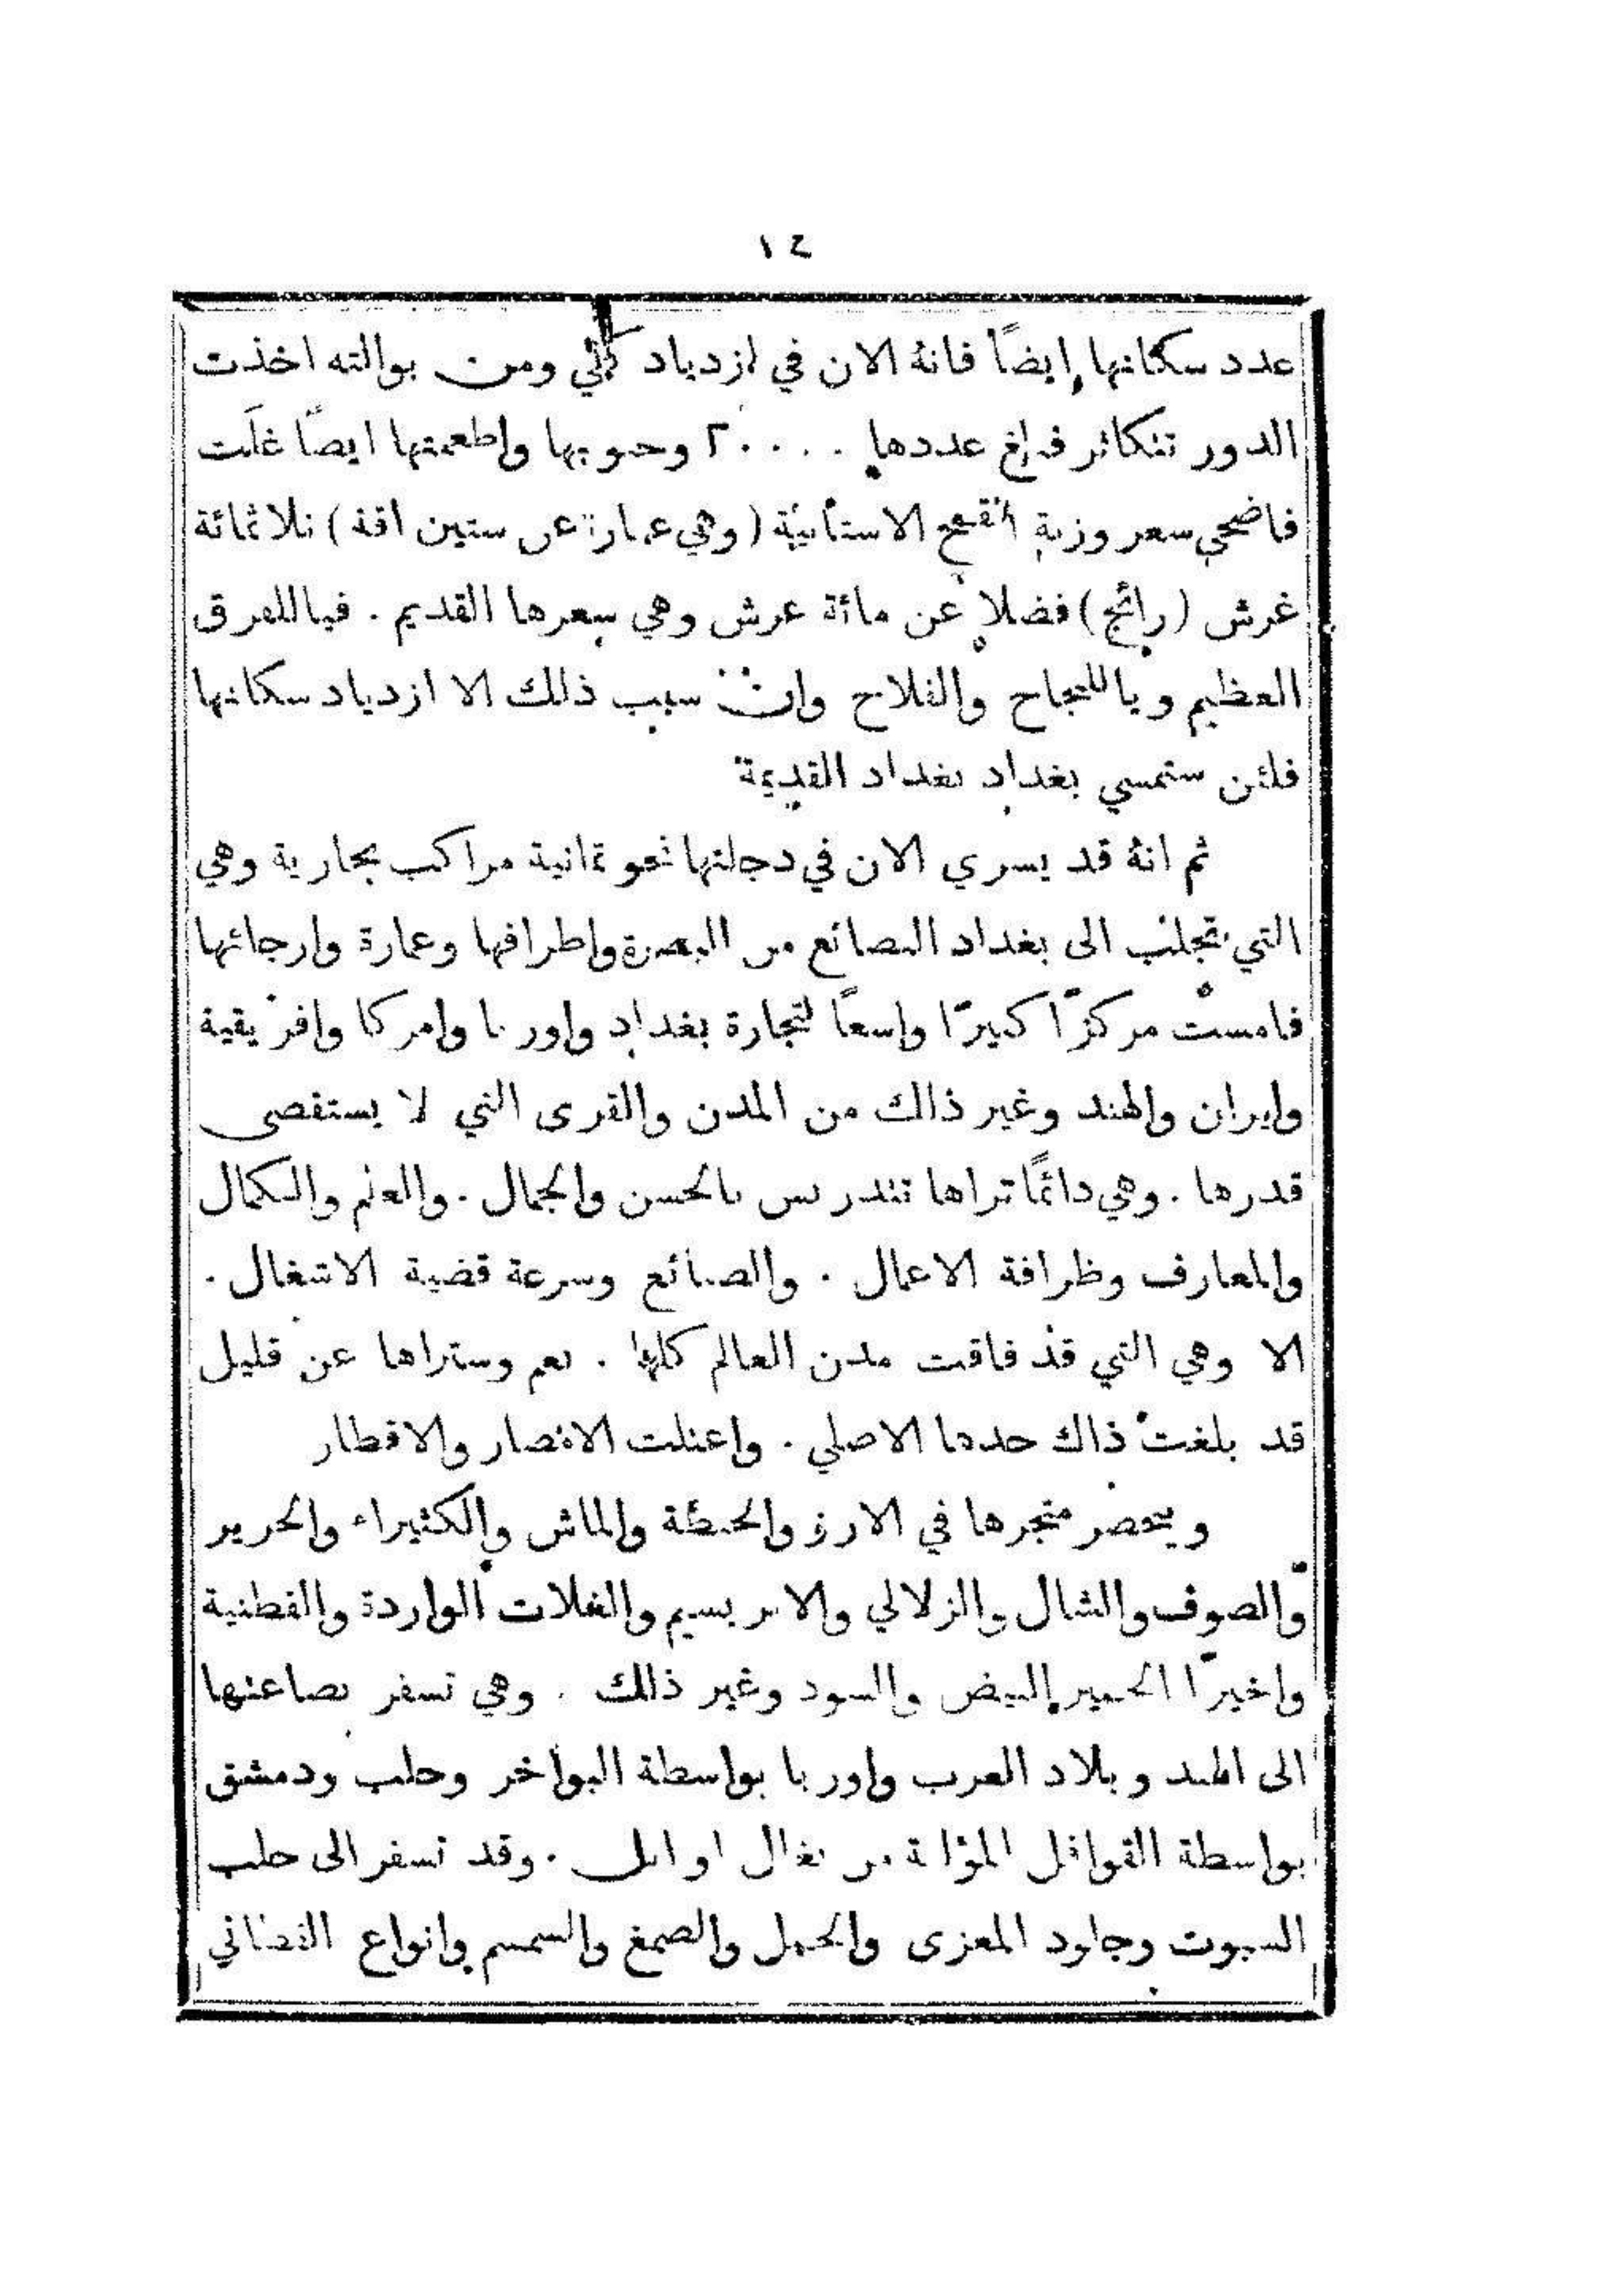 ١٤
عدد سكانها ايضاً فانهُ الان في ازدياد كلي ومن بوالته اخذت
الدور تتكاثر فبلغ عددها ٢٠٠٠٠ وحبوبها واطعمتها ايضاً غلَت
فاضحى سعر وزنة القمح الاستانية (وهي عبارة عن ستين اقة) ثلاثمائة
غرش (رائج) فضلا عن مائة غرش وهي سعرها القديم . فيا للفرق
العظيم ويا للنجاح والفلاح وان سبب ذلك الا ازدياد سكانها
فلئن ستمسي بغداد بغداد القديمة
ثم انهُ قد يسري الان في دجلتها نحو ثمانية مراكب بخارية وهي
التي تجلب الى بغداد البضائع من البصرة واطرافها وعمارة وارجائها
فامست مركزًا كبيرًا واسعاً لتجارة بغداد واوربا وامركا وافريقية
وايران والهند وغير ذالك من المدن والقرى التي لا يستقصى
قدرها . وهي دائمًا تراها تتدر بس بالحسن والجمال . والعلم والكمال
والمعارف وظرافة الاعمال . والصنائع وسرعة قضية الاشغال .
الا وهي التي قد فاقت مدن العالم كلها . نعم وستراها عن قليل
قد بلغت ذاك حدها الاصلي . واعتلت الامصار والاقطار
وينحصر متجرها في الارز والحنطة والماش والكثيراء والحرير
والصوف والشال والزلالي والابربسيم والغلات الواردة والقطنية
واخيرًا الحمير البيض والسود وغير ذالك . وهي تسفر بضاعتها
الى الهند وبلاد العرب واوربا بواسطة البواخر وحلب ودمشق
بواسطة القوافل المؤلفة من بغال او ابل . وقد تسفر الى حلب
وجلود المعزى والصمغ والسمسم وانواع